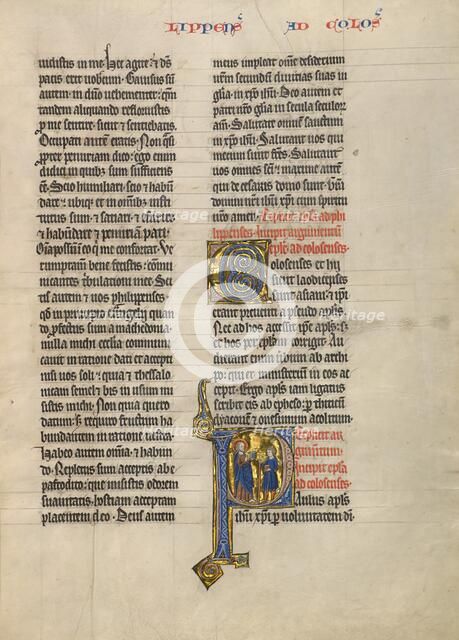 LIPPENS AD COLOS
uidistis in me. Hec agite: & ds
pacis erit uobiscum. Gauisus su
autem in dno uehementer: qm
tandem aliquando refloruistis
p me sentire. sicut & sentiebatis.
Occupati autem eratis. Non qsi
ppter penuriam dico: ego enim
didici in quib; sum sufficiens
ee. Scio humiliari. scio & habun
dare: & ubiq; & in omnib; insti
tutus sum. & satiari. & esurire.
& habundare & penuriam pati.
Omia possum in eo q me confortat. Ve
rumptamen bene fecistis: comu
nicantes tribulationi mee. Sci
tis autem & uos philippenses.
qd in principio euuangelij quan
do pfectus sum a macedonia.
nulla michi ecclia communi
cauit in ratione dati et accepti
nisi uos soli. quia & thessalo
nicam semel & bis in usum mi
sistis michi. Non quia quero
datum. s; requiro fructum ha
bundantem in ratione uestra.
Habeo autem omia. & habun
do. Repletus sum acceptis ab e
pafrodito. que misistis odorem
suauitatis. hostiam acceptam
placentem deo. Deus autem
meus impleat omne desiderium
urm secundum diuitias suas in
gla in xpo ihu. Deo autem et
patri nro gla in secula seculor
am. Salutate omnem sanctum
in xpo ihu. Salutant uos qui
mecum sunt fres. Salutant
uos omnes sci. & maxime autem
qui de cesaris domo sunt. Gra
domini nri ihu xpi cum spiritu
uro amen. Explicit epla ad phi
lippenses. Incipit argumentum
eple ad colosenses.
Colosenses et hij
sicut laodicenses
sunt asiani. & ipi
erant preuenti a pseudo aplis.
Nec ad hos accessit ipse apls. s;
et hos per eplam corrigit. Au
dierant enim uerbum ab archi
po. qui et ministerium in eos ac
cepit. Ergo apls iam ligatus
scribit eis ab epheso. p thiticum
diaconem & onesimum acolitum.
Explicit ar
gumentum.
Incipit epla
ad colosenses.
Paulus apls
ihu xpi p uoluntatem di.
heritage
Heritage